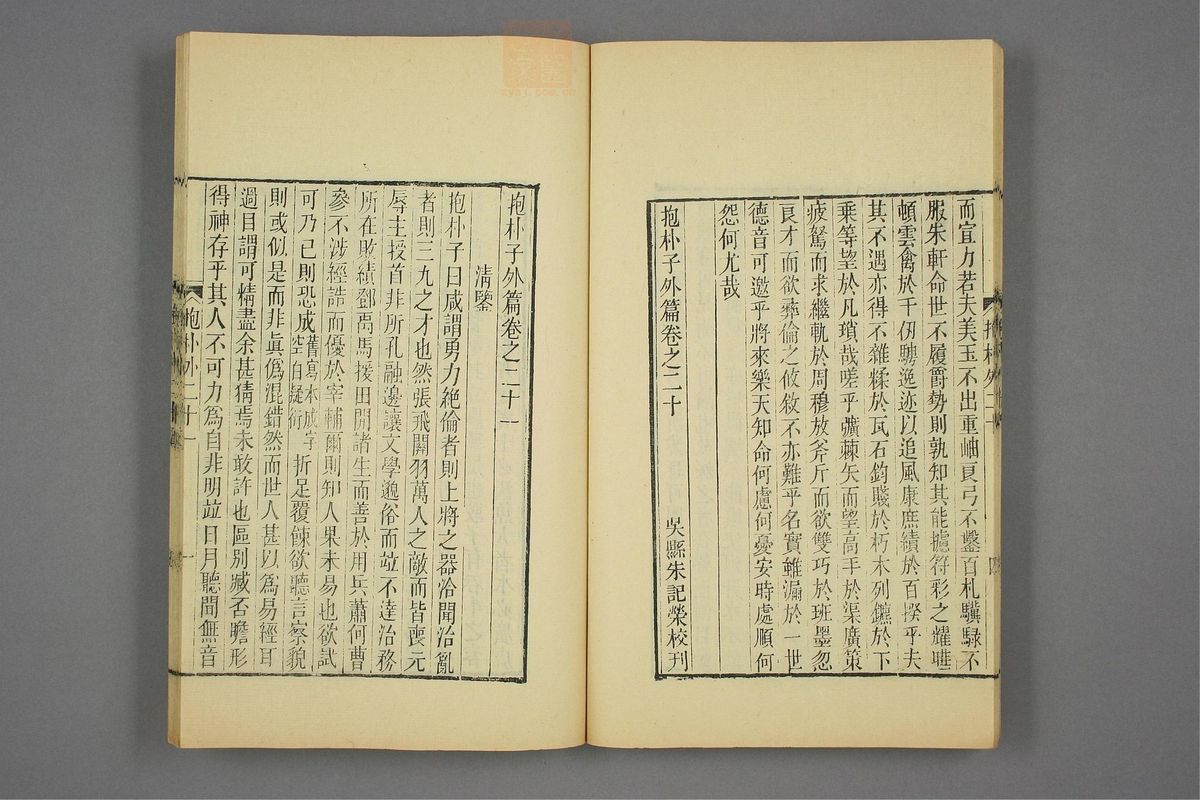 而宜力若夫美玉不出重岫良弓不鑿百札驥騄不
服朱軒命世不履爵勢則孰知其能攄符彩之耀曄
頓雲禽於千仞騁逸迹以追風康庶績於百揆乎夫
其不遇亦得不雜糅於瓦石鈞賤於朽木列鑣於下
乘等望於凡瑣哉嗟乎彍棘矢而望高手於渠廣策
疲駑而求繼軌於周穆放斧斤而欲雙巧於班墨忽
良才而欲彝倫之攸敘不亦難乎名實雖漏於一世
德音可邀乎將來樂天知命何慮何憂安時處順何
怨何尤哉
抱朴子外篇卷之二十 吳縣朱記榮校刊
抱朴外二十 四
抱朴子外篇卷之二十一
清鑒
抱朴子曰咸謂勇力絶倫者則上將之器洽聞治亂
者則三九之才也然張飛關羽萬人之敵而皆喪元
辱主授首非所孔融邊讓文學邈俗而竝不達治務
所在敗績鄧禹馬援田閒諸生而善於用兵蕭何曹
參不涉經誥而優於宰輔爾則知人果未易也欲試
可乃已則恐成舊寫本成字空白疑衍折足覆餗欲聽言察貌
則或似是而非眞僞混錯然而世人甚以爲易經耳
過目謂可精盡余甚猜焉未敢許也區別臧否瞻形
得神存乎其人不可力爲自非明竝日月聽聞無音
抱朴外二十一 一